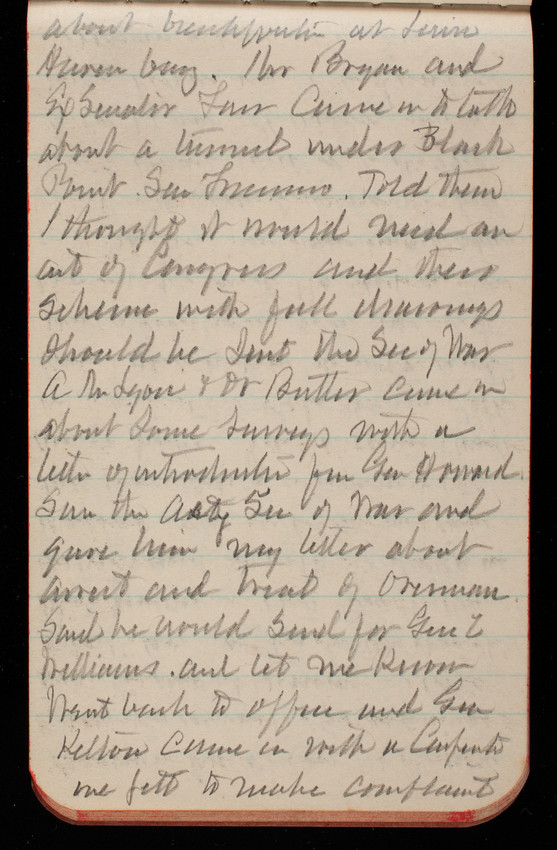 about at
Haven bay. Mr Bryan and
Ex Senator Farr Came in to talk
about a tunnel under Black
Point San . Told them
I thought it would need an
act of Congress and their
scheme with full drawings
should be sent the Sec of War
A Mr Lyon & Dr Butler came in
about some surveys with a
letter of introduction from Gen Howard.
Saw the Actg Sec of War and
gave him my letter about
arrest and treat of Overman.
Said he would send for Gen
Williams. and let me know
Went back to office and Gen
Kelton came in with a Carpenter
we felt to make complaint